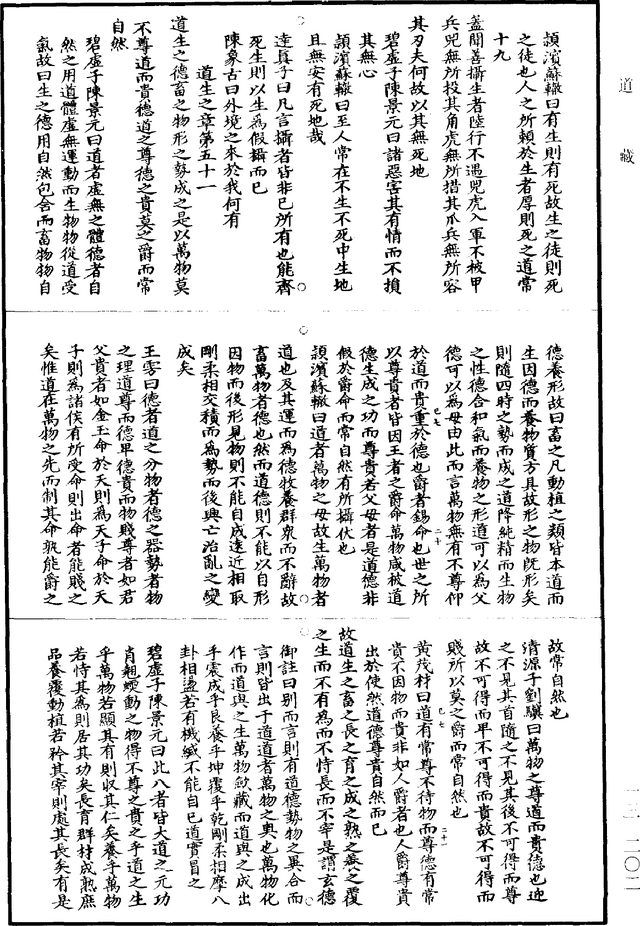 道藏
潁濱蘇轍曰有生則有死故生之徒則死
之徒也人之所賴於生者厚則死之道常
十九
蓋聞善攝生者陸行不遇兕虎入軍不被甲
兵兕無所投其角虎無所措其爪兵無所容
其刃夫何故以其無死地
碧虛子陳景元曰諸惡害其有情而不損
其無心
潁濱蘇轍曰至人常在不生不死中生地
且無安有死地哉
達真子曰凡言攝者皆非已所有也能齊
死生則以生為假攝而巳
陳象古曰外境之來於我何有
道生之章第五十一
道生之德畜之物形之勢成之是以萬物莫
不尊道而貴德道之尊德之貴莫之爵而常
自然
碧虛子陳景元曰道者虛無之體德者自
然之用道體虛無運動而生物物從道受
氣故曰生之德用自然包含而畜物物自
德養形故曰畜之凡動植之類皆本道而
生因德而養物質方具故形之物既形矣
則隨四時之勢而成之道降純精而生物
之性德合和氣而養物之形道可以為父
德可以為母由此而言萬物無有不尊仰
於道而貴重於德也爵者錫命也世之所
以尊貴者皆因王者之爵命萬物咸被道
德生成之功而尊貴若父母者是道德非
假於爵命而常自然有所攝伏也
潁濱蘇轍曰道者萬物之母故生萬物者
道也及其運而為德牧養群衆而不辭故
畜萬物者德也然而道德則不能以自形
因物而後形見物則不能自成遠近相取
剛柔相交積而為勢而後興亡治亂之變
成矣
王雱曰德者道之分物者德之器勢者物
之理道尊而德卑德貴而物賤尊者如君
父貴者如金玉命於天則為天子命於天
子則為諸侯有所受命則出命者能賤之
矣惟道在萬物之先而制其命孰能爵之
故常自然也
清源子劉驥曰萬物之尊道而貴德也迎
之不見其首隨之不見其後不可得而尊
故不可得而卑不可得而貴故不可得而
賤所以莫之爵而常自然也
黃茂材曰道有常尊不待物而尊德有常
貴不因物而貴非如人爵者也人爵尊貴
出於使然道德尊貴自然而巳
故道生之畜之長之育之成之熟之養之覆
之生而不有為而不恃長而不宰是謂玄德
御註曰別而言則有道德勢物之異合而
言則皆出于道道者萬物之奧也萬物化
作而道與之生萬物歛藏而道與之成出
乎震成乎艮養乎坤覆乎乾剛柔相摩八
卦相盪若有機緘不能自巳道實冒之
碧虛子陳景元曰此八者皆大道之元功
肖翹蝡動之物得不尊之貴之乎道之生
乎萬物若顯其有則收其仁矣養乎萬物
若恃其為則居其功矣長育群材成熟庶
品養覆動植若矜其宰則處其長矣有是
一三—二〇二